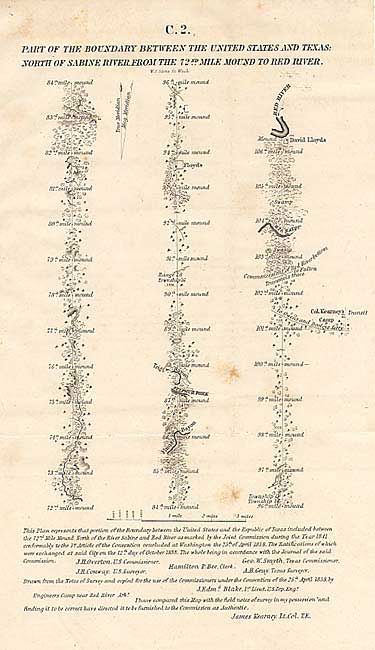 C.2.
PART OF THE BOUNDARY BETWEEN THE UNITED STATES AND TEXAS;
NORTH OF SABINE RIVER, FROM THE 72ND MILE MOUND TO RED RIVER.
84th mile mound
83th mile mound
82th mile mound
81th mile mound
80th mile mound
79th mile mound
78th mile mound
77th mile mound
76th mile mound
75th mile mound
74th mile mound
73th mile mound
72th mile mound
True Meridian
Mag. Meridian
96th mile mound
95th mile mound
94th mile mound
Floyds
93th mile mound
92th mile mound
91th mile mound
Range
Township
90th mile mound
89th mile mound
88th mile mound
87th mile mound
86th mile mound
85th mile mound
84th mile mound
RED RIVER
Mound
David Lloyds
106th mile mound
105th mile mound
Swamp
104th mile mound
103th mile mound
Commencement of Red River bottom
Trammels trace
102th mile mound
Col. Kearney's
Camp
101th mile mound
100th mile mound
99th mile mound
98th mile mound
97th mile mound
Township
Township
96th mile mound
1 mile 2 miles 3 miles
This Plan represents that portion of the Boundary between the United States and the Republic of Texas included between
the 72nd Mile Mound North of the River Sabine and Red River as marked by the Joint Commission during the Year 1841
conformably to the 1st Article of the Convention concluded at Washington the 25th of April 1838. The Ratifications of which
were exchanged at said City on the 12th day of October 1838. The whole being in accordance with the Journal of the said
Commission.
J.H. Overton, U.S Commissioner.
Geo. W. Smyth, Texas Commissioner.
Hamilton P. Bee, Clerk.
J.R. Conway, U.S Surveyor.
A.B. Gray, Texas Surveyor.
Drawn from the Notes of Survey and copied for the use of the Commissioners under the Convention of the 25th April 1838, by
J. Edmd. Blake, 1st Lieut. U.S Top. Engs.
Engineers Camp near Red River Arks.
I have compared this Map with the field notes of survey in my possession and
finding it to be correct have directed it to be furnished to the Commission as Authentic.
James Kearney Lt. Col. T.E.